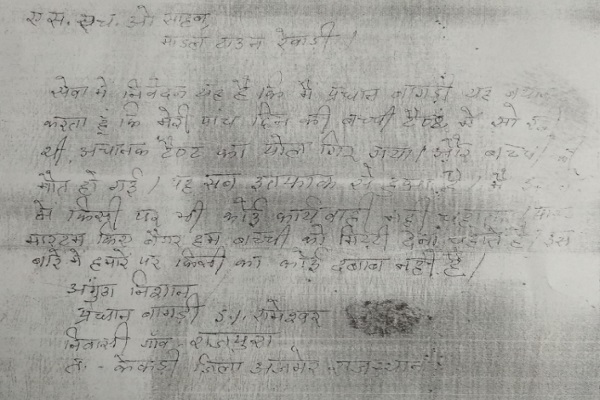 एस. एच. ओ साहब,
माडल टाउन रेवाडी।
सेवा मे निवेदन यह है कि मैं प्रधान बागडी यह बयान
करता हूं कि मेरी पांच दिन की बच्ची टैण्ट मे सो रही
थी अचानक टैण्ट का पोल गिर गया। और बच्ची की
मौत हो गई। यह सब इतफाक से हुआ है। मै
मे किसी पर भी कोई कार्यवाही नही चाहता।
मारटम किए बैगर हम बच्ची को मिट्टी देना चाहते है। इस
बारे मे हमारे पर किसी का कोई दबाव नही है।
अंगुठा निशान
प्रधान बागडी S/o रामेश्वर
निवासी गाँव -
त. - केकडी जिला अजमेर राजस्थान